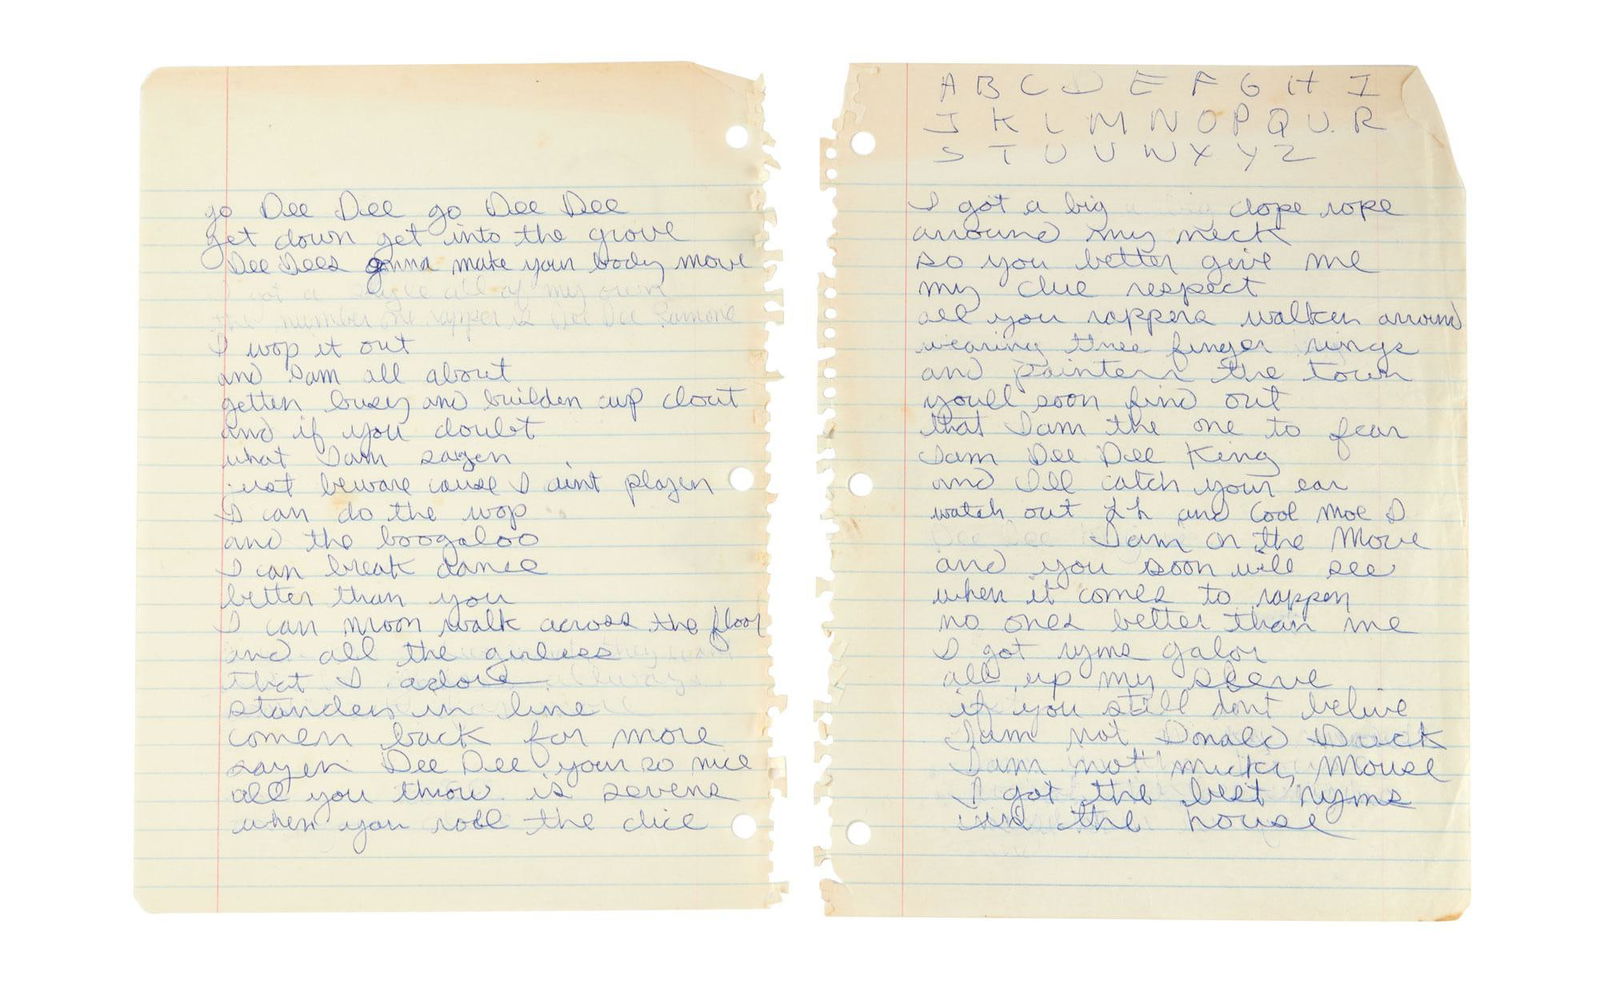 go Dee Dee go Dee Dee
get down get into the grove
Dee Dees gonna make your body move
I got a single all of my own
the number one rapper is Dee Dee Ramone
I wop it out
and Iam all about
getten busey and builden cup clout
and if you doubt
what Iam sayen
just beware cause I aint playen
I can do the wop
and the boogaloo
I can break dance
better than you
I can moon walk across the floor
and all the girlies
that I adore
standen in line
comen back for more
sayen Dee Dee your so nice
all you throw is sevens
when you roll the dice
A B C D E F G H I
J K L M N O P Q U R
S T U V W X Y Z
I got a big dope rope
around my neck
so you better give me
my due respect
all you rappers walken around
wearing three finger rings
and painten the town
youll soon find out
that Iam the one to fear
Iam Dee Dee King
and Ill catch your ear
watch out LL and Cool Moe D
Iam on the Move
and you soon will see
when it comes to rappen
no ones better than me
I got ryms galor
all up my sleve
if you still dont belive
Iam not Donald Duck
Iam not micky Mouse
I got the best ryms
in the house